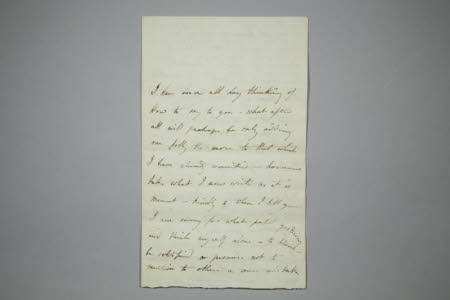 I have been all day thinking of
how to say to you - what after
all will perhaps be only adding
one folly the more to that which
I have already committed - however
take what I now write as it is
meant - kindly & when I tell you
I am sorry for what past yesterday
and think myself alone - to blame
be satisfied
mention to others a